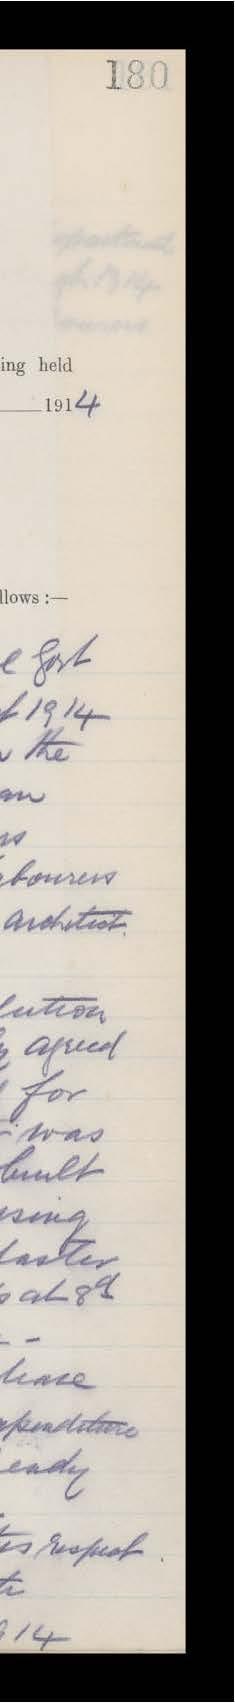 180
ing held
1914
llows :—
l Govt
1914
the
an
ns
abourers
architect.
lution
agreed
for
was
built
using
laster
s at 8d
- -
hase
xpenditure
eady
tes respect.
914